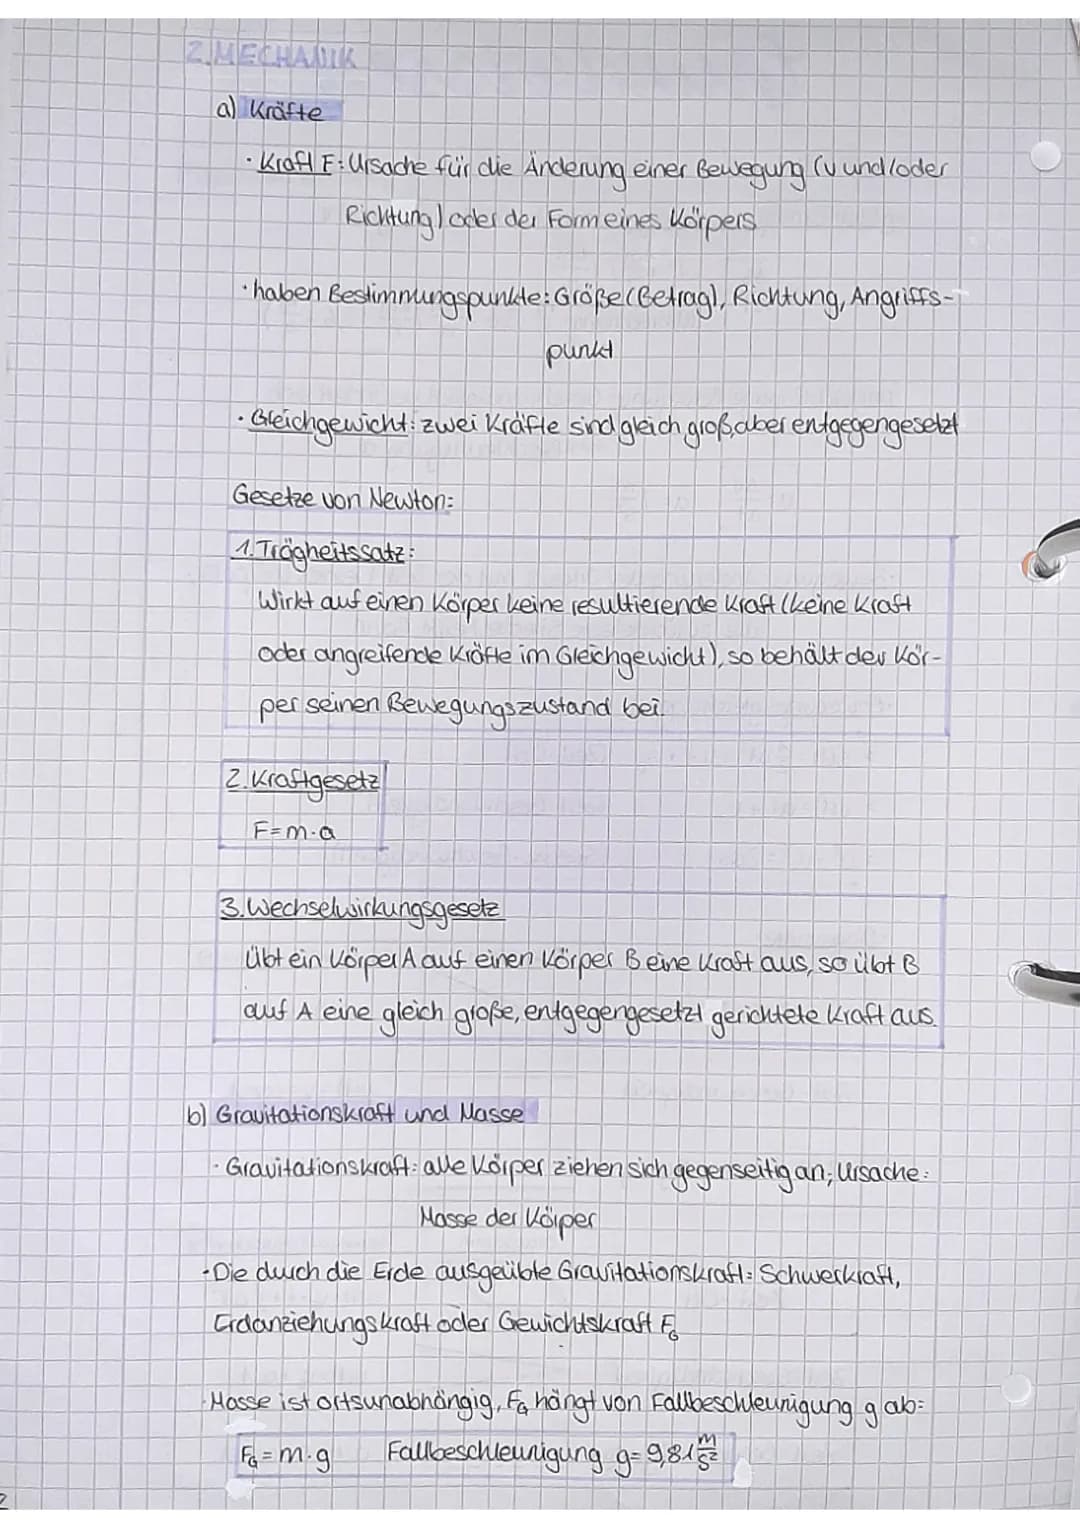 2.MECHANIK
a) Kräfte
· Kraft F: Ursache für die Änderung einer Bewegung (v und/oder
Richtung) oder der Form eines Körpers
· haben Bestimmungspunkte: Größe (Betrag), Richtung, Angriffs-
punkt
· Gleichgewicht: zwei Kräfte sind gleich groß, aber entgegengesetzt
Gesetze von Newton:
1. Trägheitssatz:
Wirkt auf einen Körper keine resultierende Kraft (keine Kraft
oder angreifende Kräfte im Gleichgewicht), so behält der Kör-
per seinen Bewegungszustand bei.
2. Kraftgesetz
F=m·a
3. Wechselwirkungsgesetz
Übt ein Körper A auf einen Körper B eine Kraft aus, so übt B
auf A eine gleich große, entgegengesetzt gerichtete Kraft aus.
b) Gravitationskraft und Masse
· Gravitationskraft: alle Körper ziehen sich gegenseitig an; Ursache:
Masse der Körper
· Die durch die Erde ausgeübte Gravitationskraft: Schwerkraft,
Erdanziehungskraft oder Gewichtskraft F_G
· Masse ist ortsunabhängig, F_G hängt von Fallbeschleunigung g ab:
F_G = m·g Fallbeschleunigung g= 9,81 m/s²
2